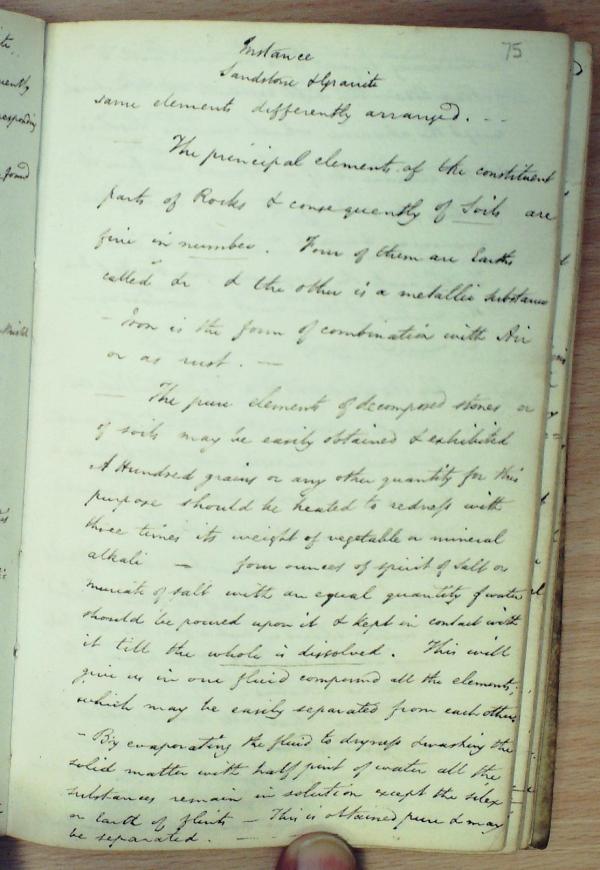 75
Instance
Sandstone & Granite
same elements differently arranged. - -
The principal elements of the constituent
parts of Rocks & consequently of Soils are
five in number. Four of them are Earths
called &c & the other is a metallic substance
- Iron is the form of combination with Air
or as rust. —
— The pure elements of decomposed stones or
of soils may be easily obtained & exhibited
A Hundred grains or any other quantity for this
purpose should be heated to redness with
three times its weight of vegetable or mineral
alkali — four ounces of spirit of Salt or
muriate of salt with an equal quantity of water
should be poured upon it & kept in contact with
it till the whole is dissolved. This will
give us in one fluid compound all the elements;
which may be easily separated from each other.
- By evaporating the fluid to dryness & washing the
solid matter with half pint of water all the
substances remain in solution except the silex
or Earth of flints — This is obtained pure & may
be separated. —